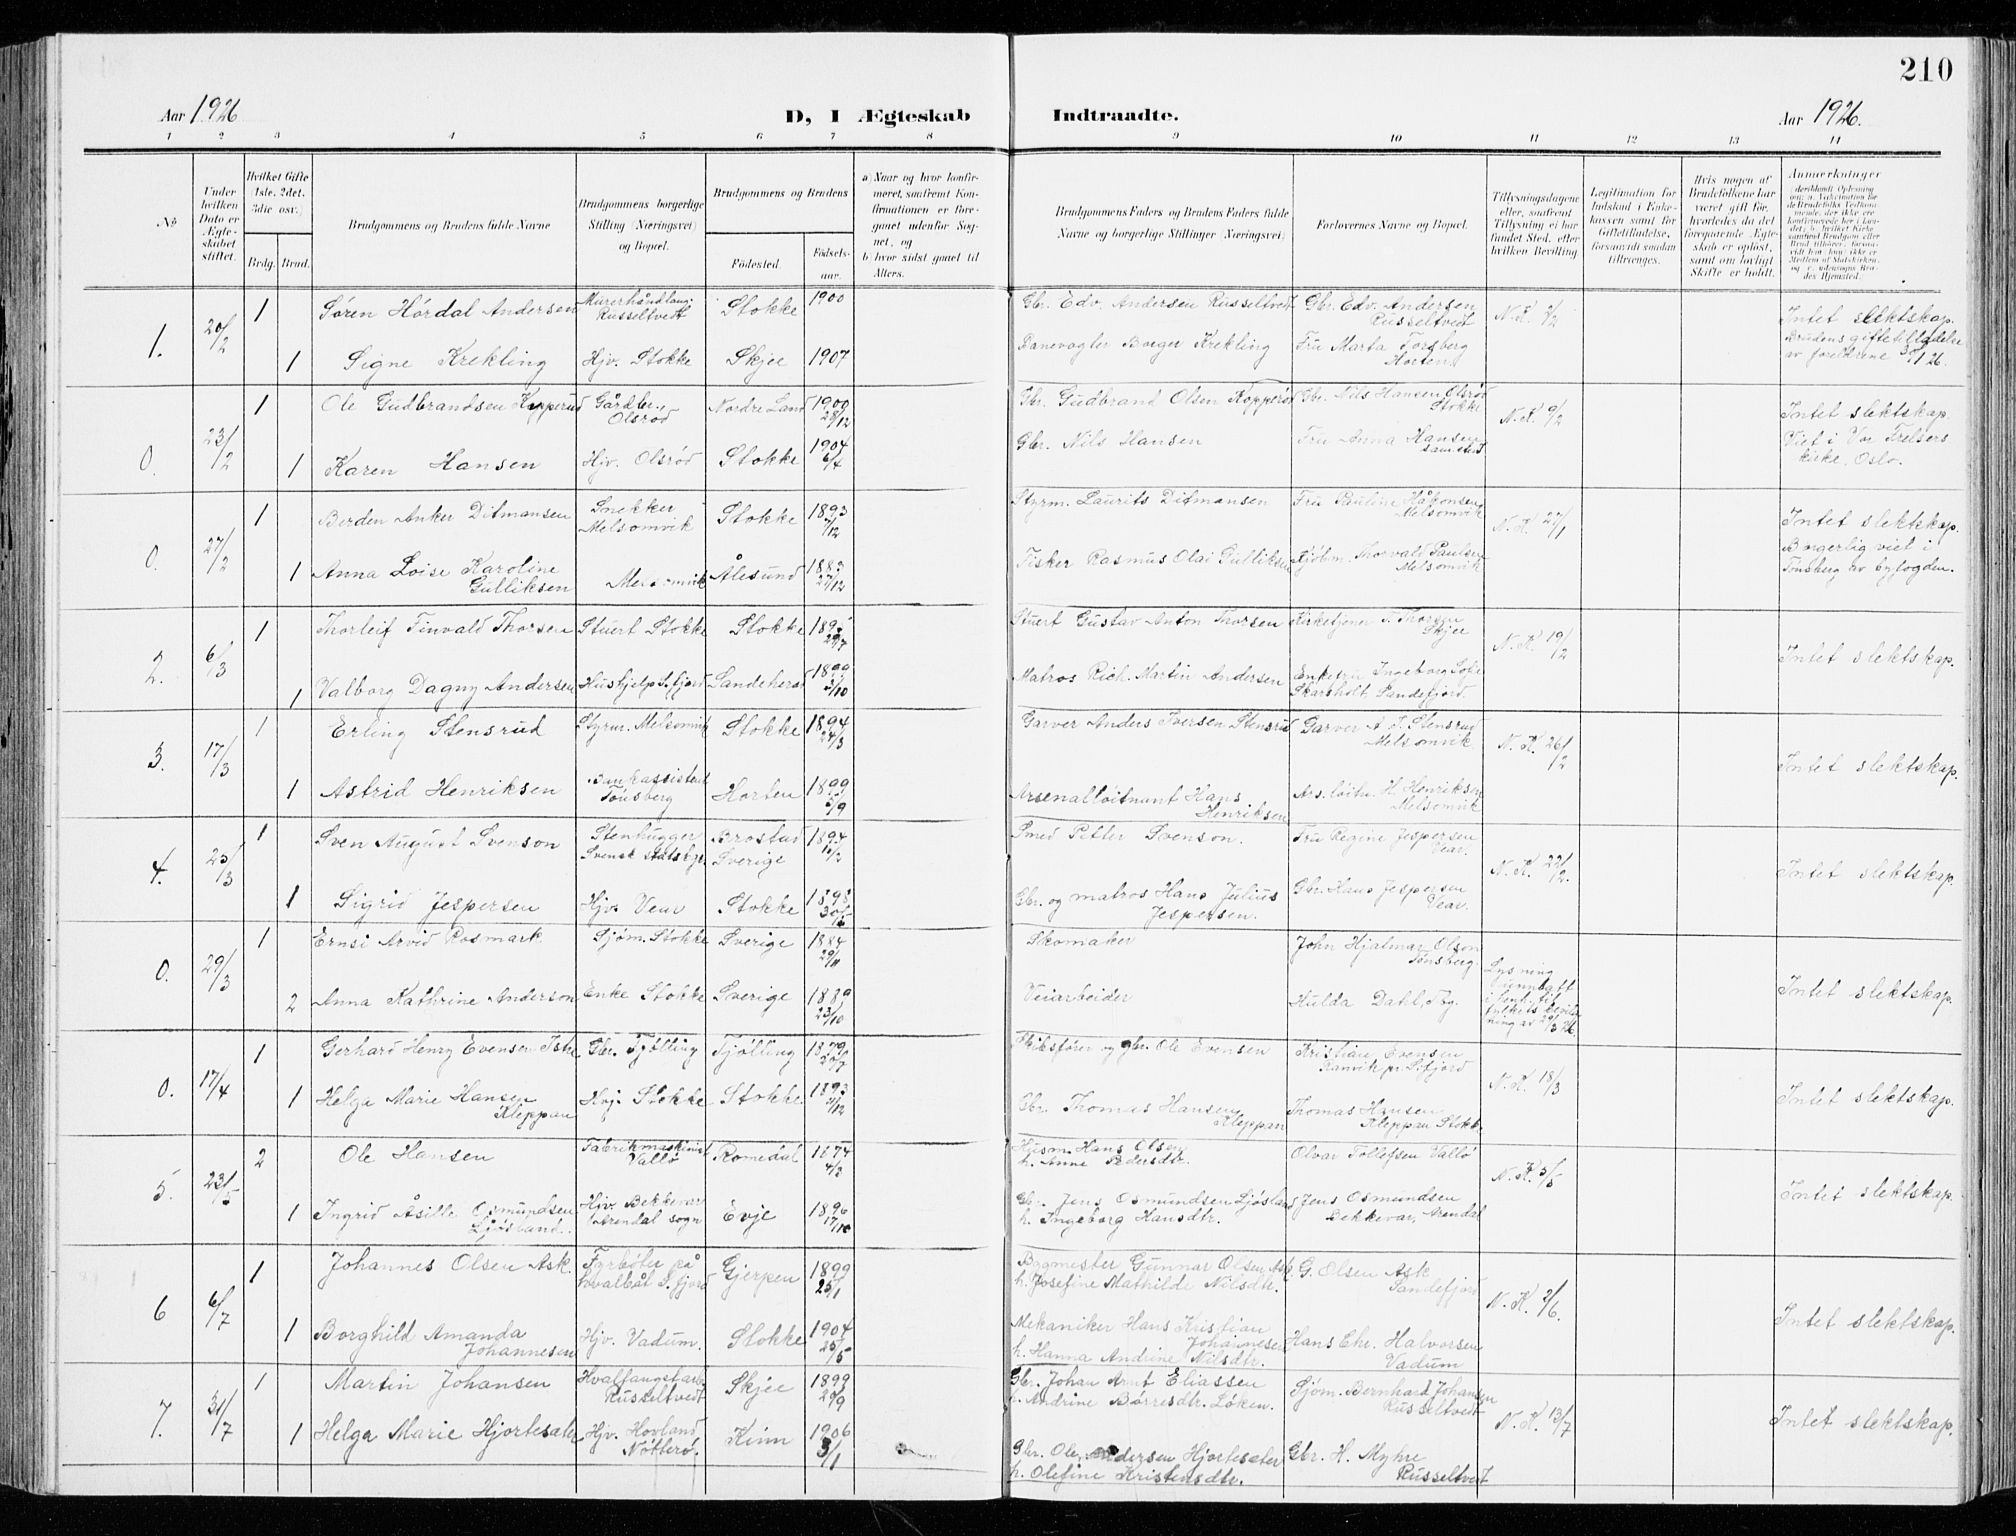 210
Aar 1926
D, I Ægteskab
Indtraadte.
Aar 1926.
1 2 3 4 5 6 7 8 9 10 11 12 13 14
No
Under hvilken Dato er Ægteskabet stiftet.
Hvilket Gifte (1ste, 2det, 3die osv.)
Brdg. Brud.
Brudgommens og Brudens fulde Navne
Brudgommens borgerlige Stilling (Næringsvei) og Bopæl.
Brudgommens og Brudens
Fødested. Fødselsaar.
a) Naar og hvor konfirmeret, saafremt Konfirmationen er foregaaet udenfor Sognet, og
b) hvor sidst gaaet til Alters.
Brudgommens Faders og Brudens Faders fulde Navne og borgerlige Stillinger (Næringsvei)
Forlovernes Navne og Bopæl.
Tillysningsdagene eller, saafremt Tillysning ei har fundet Sted, efter hvilken Bevilling.
Legitimation for Indskud i Enkekassen samt for Giftetilladelse, forsaavidt saadan tiltrænges.
Hvis nogen af Brudefolkene har været gift før, hvorledes da det foregaaende Ægteskab er opløst, samt om lovligt Skifte er holdt.
Anmerkninger
1. 20/2 1 Søren Hørdal Andersen Murerhåndlang. Russeltvedt Stokke 1900 Gbr. Edv. Andersen Russeltvedt Gbr. Edv. Andersen Russeltvedt N. K. 9/2 Intet slektskap.
1 Signe Krekling Hjv. Stokke Skjee 1907 Banevogter Borger Krekling Fru Marta Torsberg Horten. Brudens giftetilladelse av foreldrene 30/1 26.
0. 23/2 1 Ole Gudbrandsen Kopperud Gårdbr., Olsrød Nordre Land 1900 28/12 Gbr. Gudbrand Olsen Kopperud Gbr. Nils Hansen Olsrød Stokke N. K. 9/2 Intet slektskap.
1 Karen Hansen Hjv. Olsrød Stokke 1904 6/4 Gbr. Nils Hansen Fru Anna Hansen samsteds Viet i Vor Frelsers kirke, Oslo.
0. 27/2 1 Berden Anker Ditmansen Snekker Melsomvik Stokke 1893 7/12 Styrm. Laurits Ditmansen Fru Pauline Håkonsen Melsomvik N. K. 27/1 Intet slektskap.
1 Anna Loise Karoline Gulliksen Melsomvik Ålesund 1883 27/12 Fisker Rasmus Olai Gulliksen Sjøbm. Thorvald Paulsen Melsomvik Borgerlig viet i Tønsberg av byfogden.
2. 6/3 1 Thorleif Finvald Thorsen Stuert Stokke Stokke 29/7 Stuert Gustav Anton Thorsen Kirketjener T. Thorsen Skjee N. K. 19/2 Intet slektskap.
1 Valborg Dagny Andersen Hushjelp S.fjord Sandeherad 1899 3/10 Matros Rich. Martin Andersen Enkefru Ingeborg Sofie Skarsholt Sandefjord.
3. 17/3 1 Erling Stensrud Styrm. Melsomvik Stokke 1894 24/3 Garver Anders Iversen Stensrud Garver A. I. Stensrud Melsomvik N. K. 26/2 Intet slektskap.
1 Astrid Henriksen Bankassistent Tønsberg Horten 1899 /9 Arsenalløitnant Hans Henriksen Ars.løitn. H. Henriksen Melsomvik
4. 25/3 1 Sven August Svenson Stenhugger Svensk statsbgr. Brostad Sverige 1894 Smed Petter Svenson. Fru Regine Jespersen Vear. N. K. 22/2. Intet slektskap.
1 Sigrid Jespersen Hjv. Vear Stokke 1898 Gbr. og matros Hans Julius Jespersen. Gbr. Hans Jespersen Vear.
0. 29/3 1 Ernst Arvid Rosmark Sjøm. Stokke Sverige 1884 29/11 Skomaker John Hjalmar Olson Tønsberg. Lysning unnlatt Intet slektskap.
2 Anna Kathrine Anderson Enke Stokke Sverige 1889 23/10 Veiarbeider Hulda Dahl, Tbg.
0. 17/4 1 Gerhard Henry Evensen Gbr. Tjølling Tjølling 1879 Fliksfører og gbr. Ole Evensen Kristian Evensen Ranvik pr. S.fjord N. K. 18/3 Intet slektskap.
1 Helga Marie Hansen Kleppan Hvj. Stokke Stokke 1893 Gbr. Thomas Hansen Kleppan Thomas Hansen Kleppan Stokke
5. 23/5 2 Ole Hansen Fabrikmaskinist Vallø Romedal 1874 4/2 Husm. Hans Olsen h. Anne Pedersdtr. Olvar Tollefsen Vallø N. K. 5/5 Intet slektskap.
1 Ingrid Åsille Osmundsen Ljosland. Hjv. Bekkevar Arendal sogn Evje 1896 17/10 Gbr. Jens Osmundsen Ljosland h. Ingeborg Hansdtr. Jens Osmundsen Bekkevar, Arendal
6 6/7 1 Johannes Olsen Ask. Fyrbøter på hvalbåt S.fjord Gjerpen 1899 25/1 Bygmester Gunnar Olsen Ask h. Josefine Mathilde Nilsdtr. G. Olsen Ask Sandefjord N. K. 2/6. Intet slektskap.
1 Borghild Amanda Johannesen Hjv. Vadum. Stokke 1904 25/5 Mekaniker Hans Kristian Johannesen h. Hanna Andrine Nilsdtr. Hans Chr. Halvorsen Vadum
7. 31/7 1 Martin Johansen Hvalfangstarb. Russeltvedt Skjee 1899 29/9 Gbr. Johan Arnt Eliassen h. Andrine Børresdtr. Løken. Sjøm. Bernhard Johansen Russeltvedt N. K. 13/7 Intet slektskap.
1 Helga Marie Hjortesæter Hjv. Hovland Nøtterø. Kinn 1906 3/1 Gbr. Ole Andersen Hjortesæter h. Olefine Kristensdtr. Gbr. H. Myhre Russeltvedt